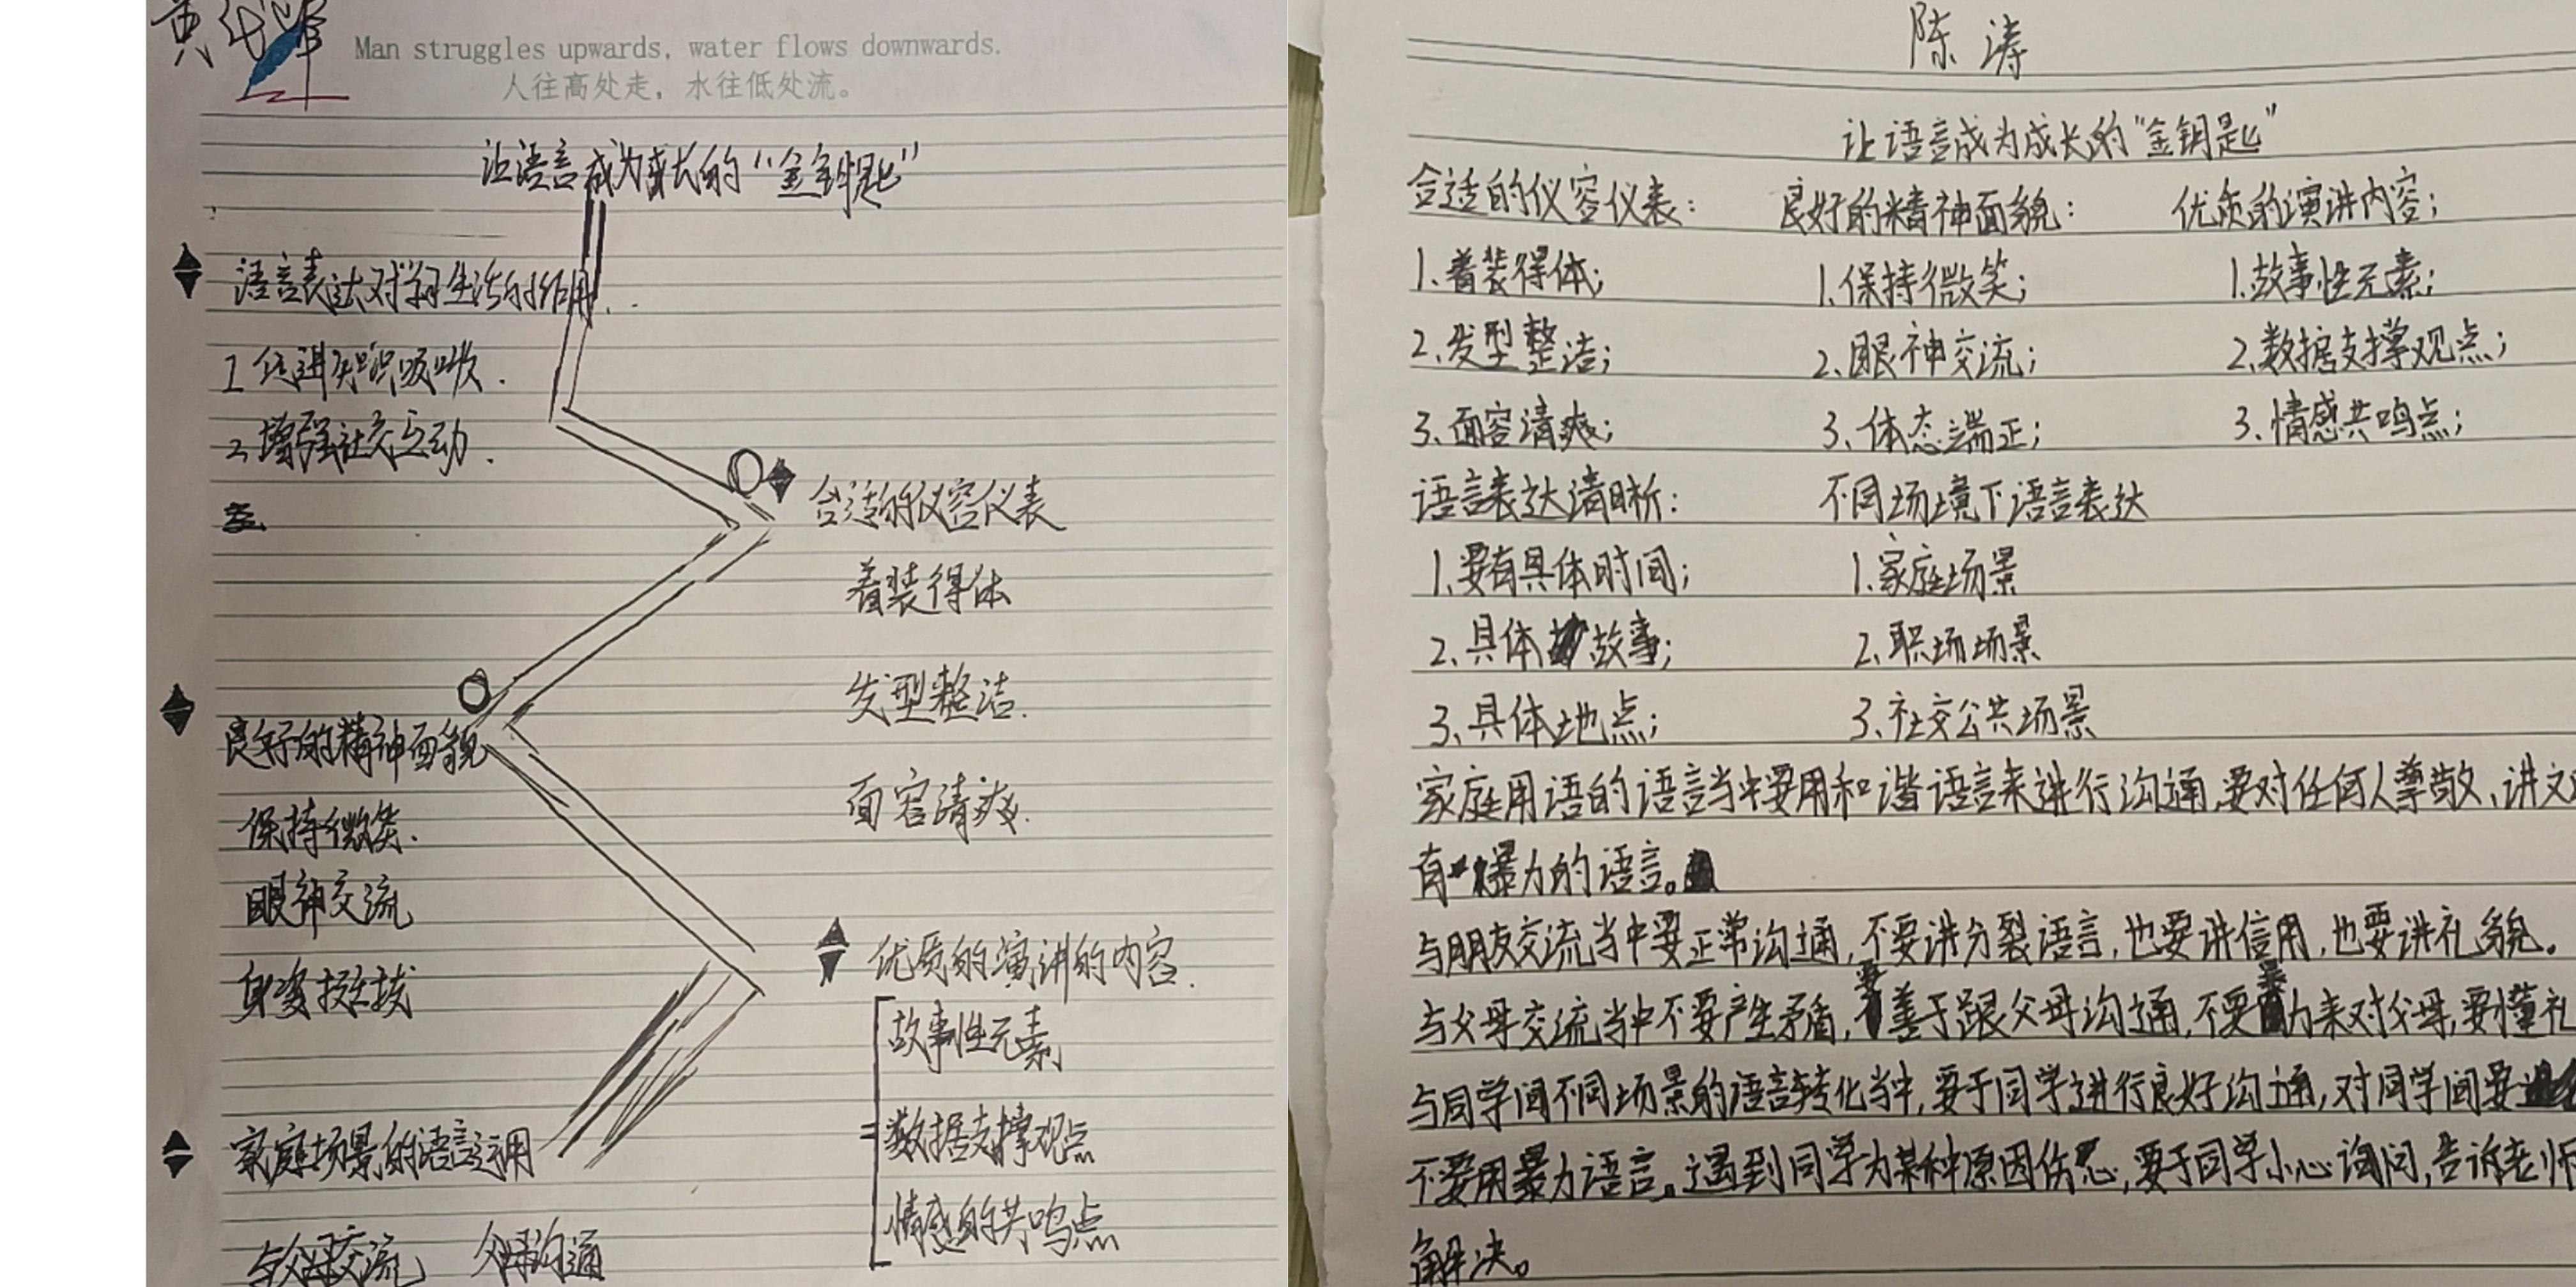 Man struggles upwards, water flows downwards.
人往高处走，水往低处流。
让语言成为成长的“金钥匙”
语言表达对学习生活的作用.
1 促进知识吸收.
2 增强社交互动.
合适的仪容仪表
着装得体
发型整洁.
面容清爽.
良好的精神面貌
保持微笑.
眼神交流
身姿挺拔
优质的演讲的内容.
故事性元素
数据支撑观点
情感的共鸣点
家庭场景的语言运用
与父母交流 父母沟通
陈涛
让语言成为成长的“金钥匙”
合适的仪容仪表： 良好的精神面貌： 优质的演讲内容；
1.着装得体； 1.保持微笑； 1.故事性元素；
2.发型整洁； 2.眼神交流； 2.数据支撑观点；
3.面容清爽； 3.体态端正； 3.情感共鸣点；
语言表达清晰： 不同场境下语言表达
1.要有具体时间； 1.家庭场景
2.具体故事； 2.职场场景
3.具体地点； 3.社交公共场景
家庭用语的语言当中要用和谐语言来进行沟通,要对任何人尊敬、讲文
有暴力的语言。
与朋友交流当中要正常沟通,不要讲分裂语言,也要讲信用,也要讲礼貌。
与父母交流当中不要产生矛盾,要善于跟父母沟通,不要暴力来对父母,要懂礼
与同学间不同场景的语言转化当中,要于同学进行良好沟通,对同学间要
不要用暴力语言。遇到同学为某种原因伤心,要于同学小心询问,告诉老师
解决。